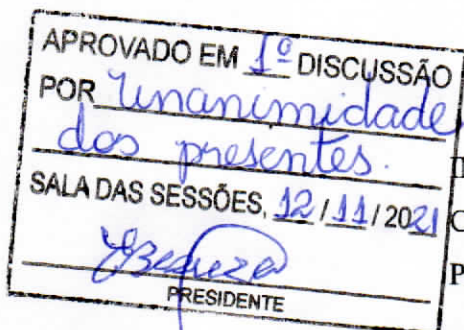 APROVADO EM 1º DISCUSSÃO
POR Unanimidade
dos presentes.
SALA DAS SESSÕES, 12 / 11 / 2021
PRESIDENTE